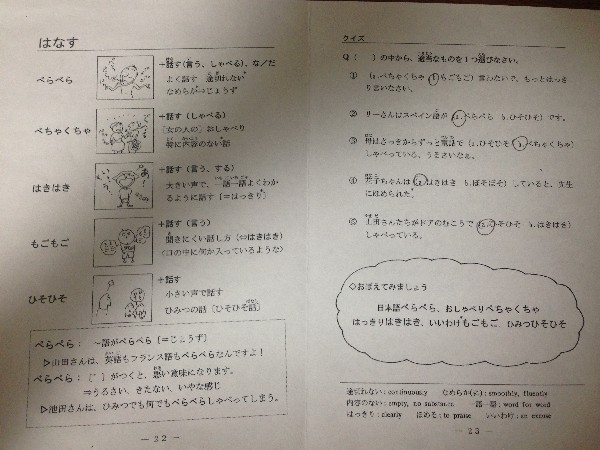 はなす
ぺらぺら
+話す(言う、しゃべる)、な/だ
よく話す 途切れない
なめらか⇒じょうず
ぺちゃくちゃ
+話す(しゃべる)
[女の人の] おしゃべり
特に内容のない話
はきはき
+話す(言う、する)
大きい声で、一語一語よくわか
るように話す [=はっきり]
もごもご
+話す(言う)
聞きにくい話し方 (⇔はきはき)
<口の中に何か入っているような>
ひそひそ
+話す
小さい声で話す
ひみつの話 [ひそひそ話]
ぺらぺら: ~語がぺらぺら [=じょうず]
▷山田さんは、英語もフランス語もぺらぺらなんですよ!
べらべら: [゛] がつくと、悪い意味になります。
⇒うるさい、きたない、いやな感じ
▷池田さんは、ひみつでも何でもべらべらしゃべってしまう。
— 22 —
クイズ
Q ( ) の中から、適当なものを1つ選びなさい。
① (a.ぺちゃくちゃ b.もごもご) 言わないで、もっとはっき
り言いなさい。
② リーさんはスペイン語が (a.ぺらぺら b.ひそひそ) です。
③ 母はさっきからずっと電話で (a.ひそひそ b.ぺちゃくちゃ)
しゃべっている。うるさいなぁ。
④ 子ちゃんは (a.はきはき b.ぼそぼそ) していると、先生
にほめられた。
⑤ 上田さんたちがドアのむこうで (a.ひそひそ b.はきはき)
しゃべっている。
◇おぼえてみましょう
日本語ぺらぺら、おしゃべりぺちゃくちゃ
はっきりはきはき、いいわけもごもご、ひみつひそひそ
途切れない: continuously なめらか(に): smoothly, fluently
内容のない: empty, no substance 一語一語: word for word
はっきり: clearly ほめる: to praise いいわけ: an excuse
— 23 —